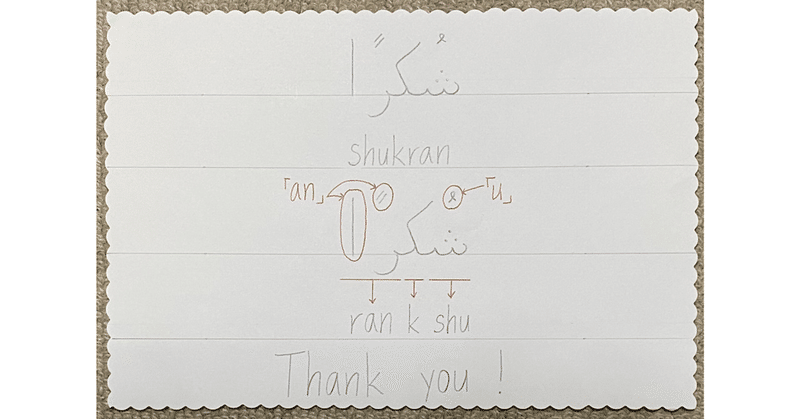 شُكرًا
shukran
「an」 「u」
شكر ا
ran k shu
Thank you !